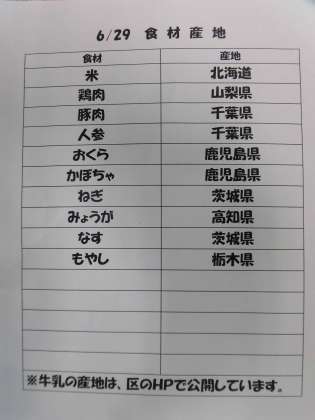 6/29 食材産地
食材 産地
米 北海道
鶏肉 山梨県
豚肉 千葉県
人参 千葉県
おくら 鹿児島県
かぼちゃ 鹿児島県
ねぎ 茨城県
みょうが 高知県
なす 茨城県
もやし 栃木県
※牛乳の産地は、区のHPで公開しています。